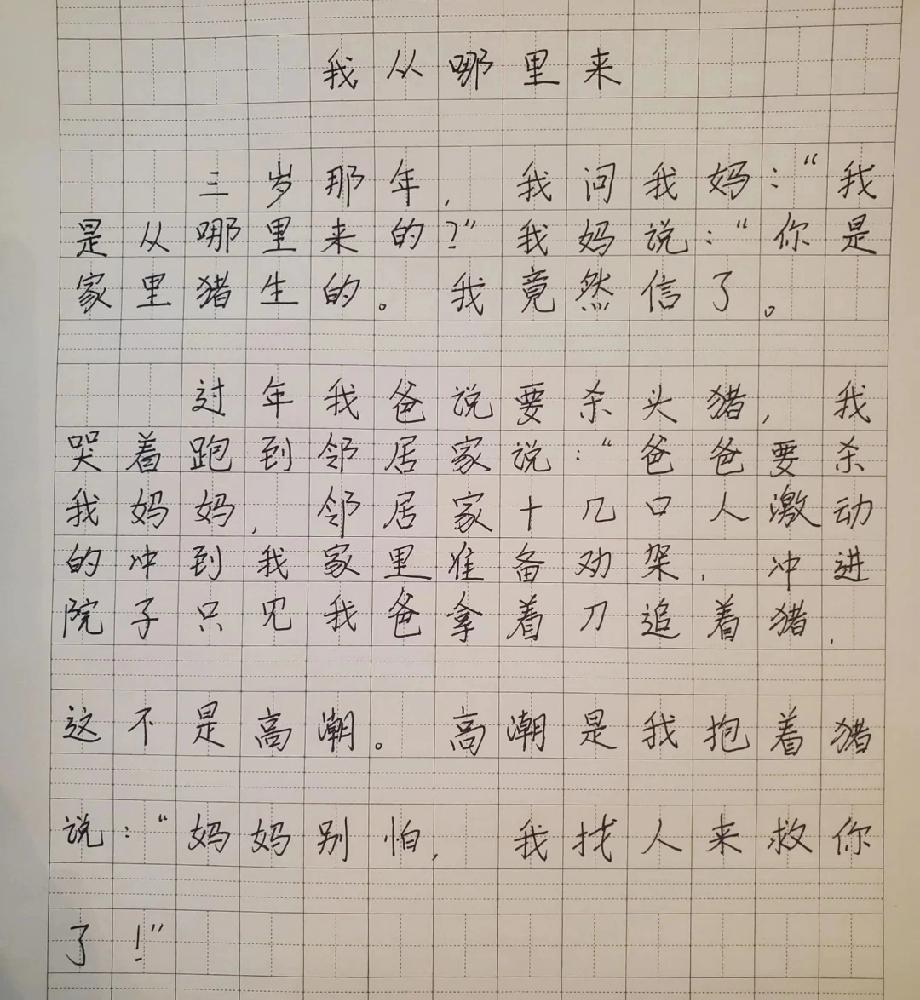 我从哪里来
三岁那年，我问我妈：“我
是从哪里来的？”我妈说：“你是
家里猪生的。我竟然信了。
过年我爸说要杀头猪，我
哭着跑到邻居家说：“爸爸要杀
我妈妈，邻居家十几口人激动
的冲到我家里准备劝架，冲进
院子只见我爸拿着刀追着猪，
这不是高潮。高潮是我抱着猪
说：“妈妈别怕，我找人来救你
了！”